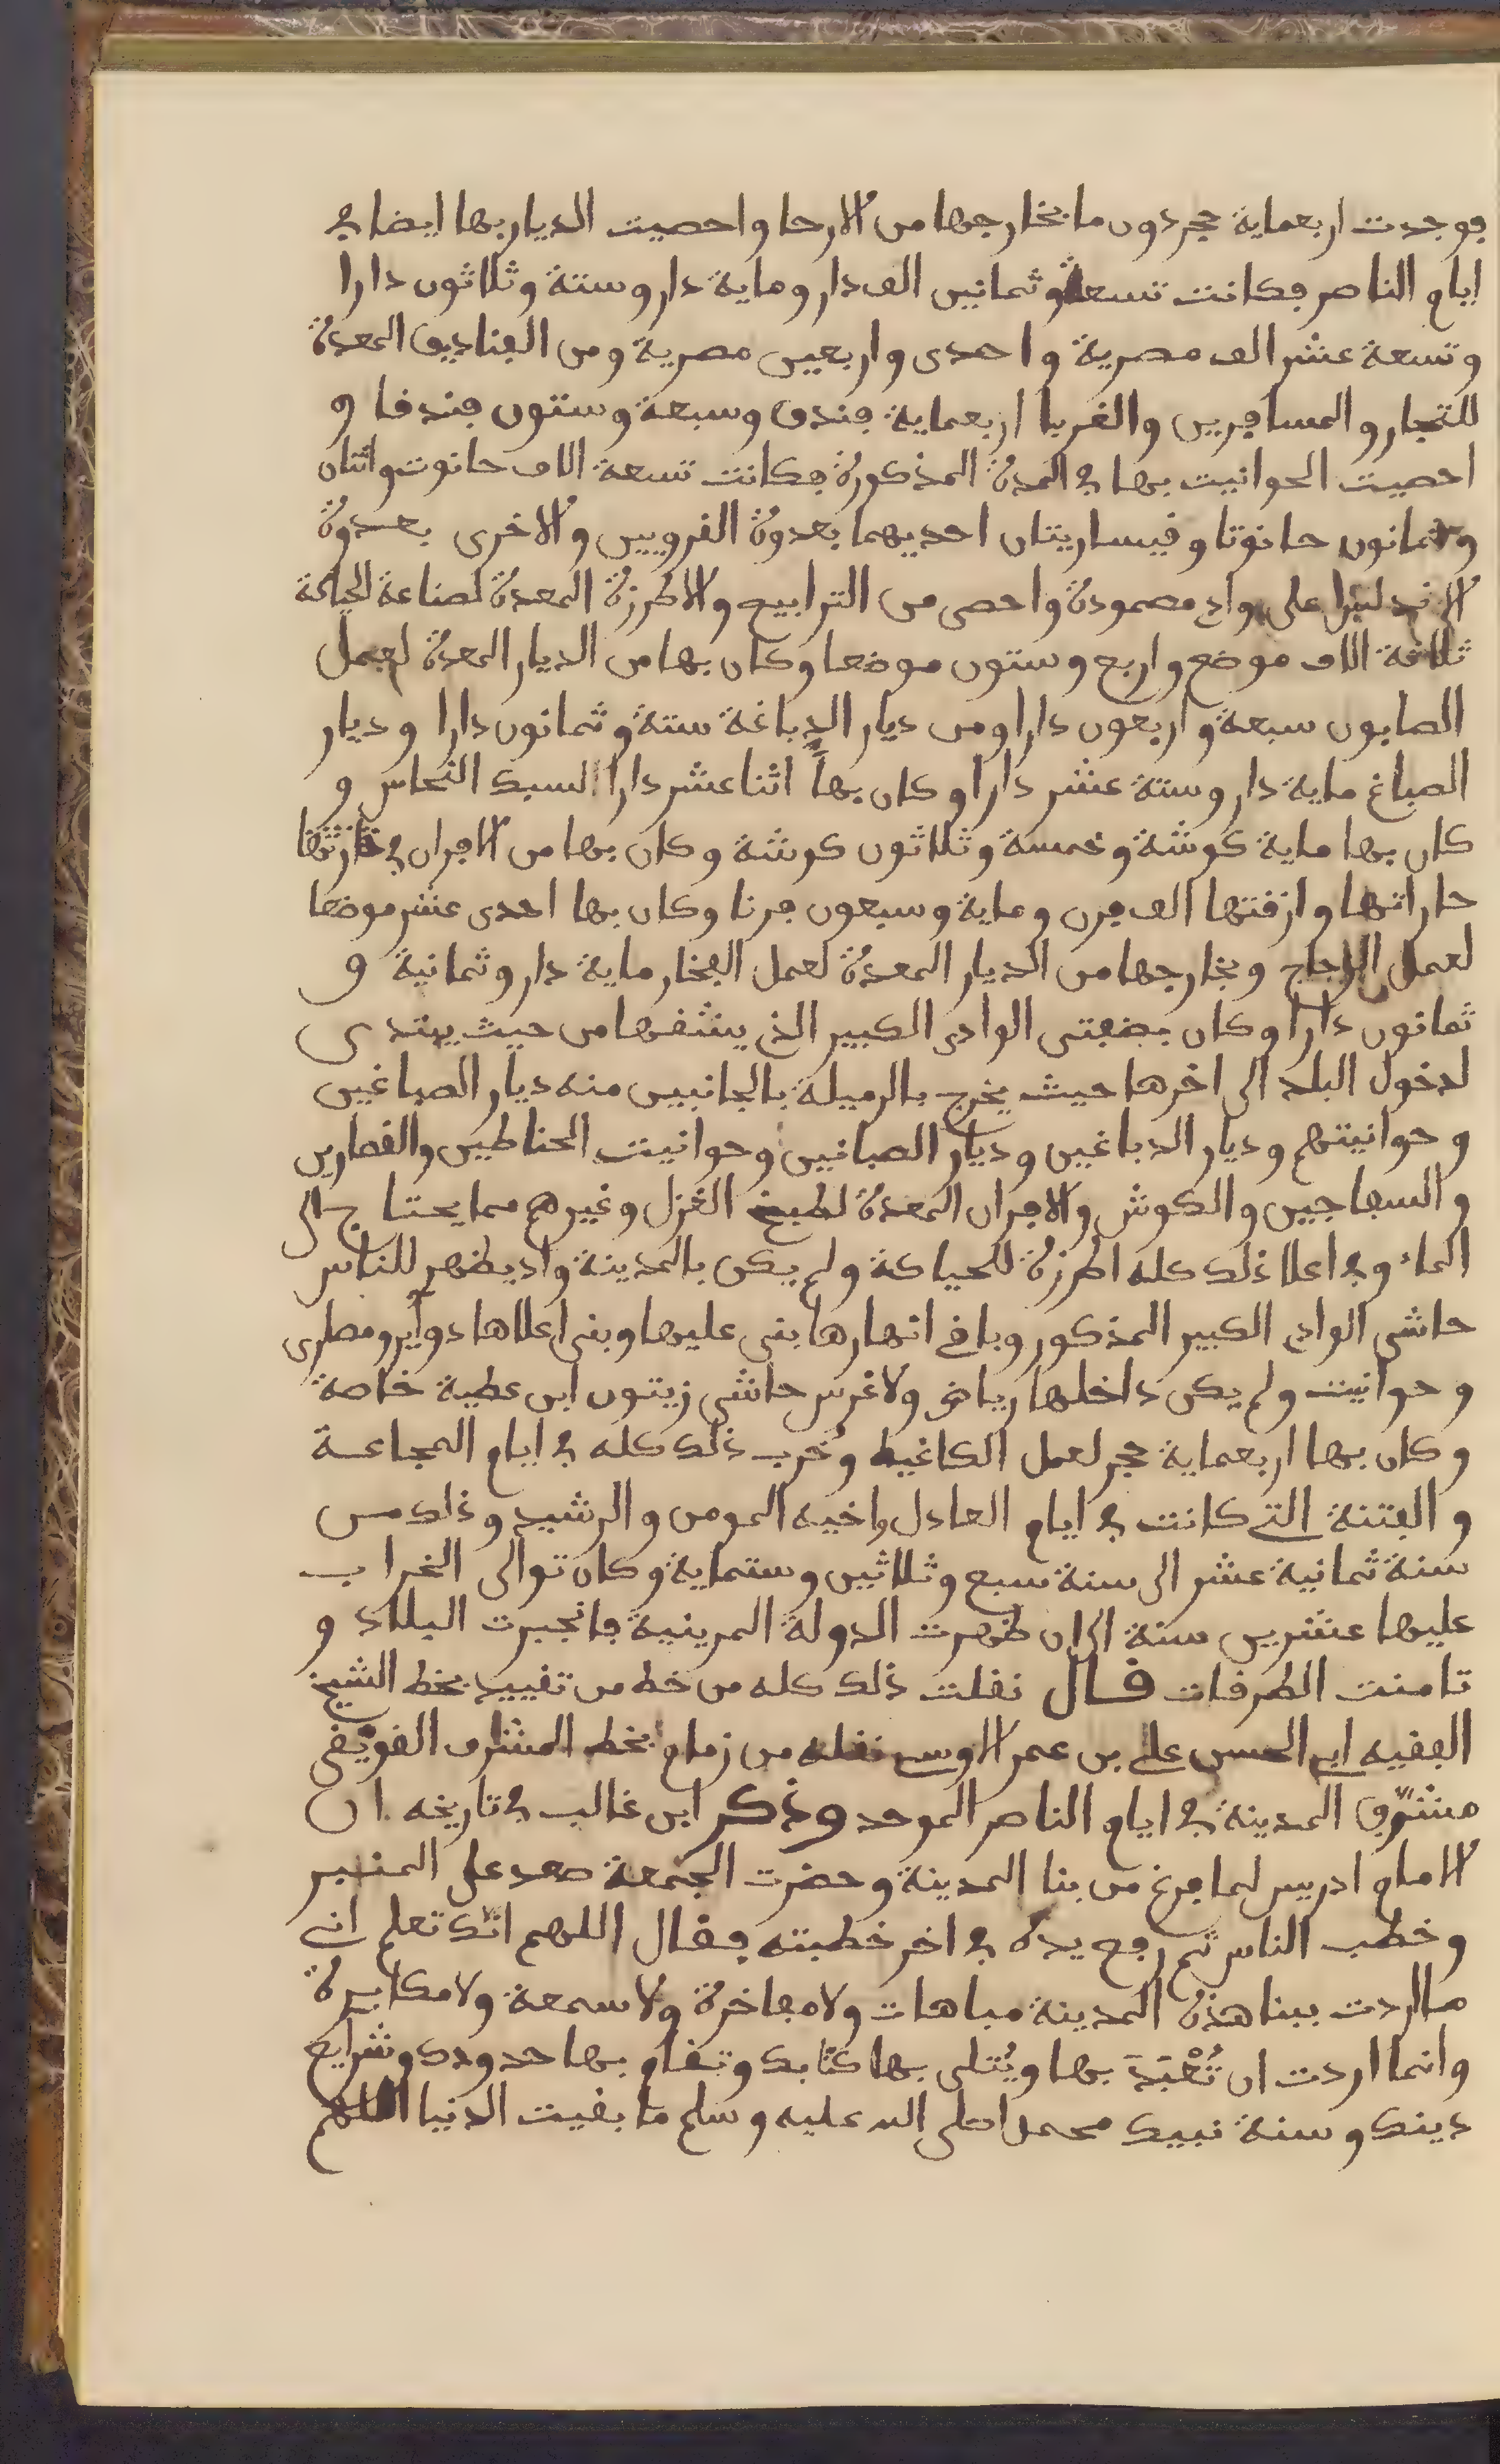 فوجدت اربعماية حجر دون ما بخارجها من الارحا واحصيت الديار بها ايضا في
ايام الناصر فكانت تسعة وثمانين الف دار وماية دار وستة وثلاثون دارا
وتسعة عشر الف مصرية واحدى واربعين مصرية ومن الفناديق المعدة
للتجار والمسافرين والغربا اربعماية فندق وسبعة وستون فندقا و
احصيت الحوانيت بها في المدة المذكورة فكانت تسعة الاف حانوت واثنان
وثمانون حانوتا وقيساريتان احديهما بعدوة القرويين والاخرى بعدوة
الاندلس على واد مصمودة واحصى من الترابيع والاطرزة المعدة لصناعة الحياكة
ثلاثة الاف موضع واربع وستون موضعا وكان بها من الديار المعدة لعمل
الصابون سبعة واربعون دارا ومن ديار الدباغة ستة وثمانون دارا وديار
الصباغ ماية دار وستة عشر دارا وكان بها اثنا عشر دارا لسبك النحاس و
كان بها ماية كوشة وخمسة وثلاثون كوشة وكان بها من الافران في
حاراتها وازقتها الف فرن وماية وسبعون فرنا وكان بها احدى عشر موضعا
لعمل الزجاج وبخارجها من الديار المعدة لعمل الفخار ماية دار وثمانية و
ثمانون دارا وكان بضفتي الوادى الكبير الذي يشقها من حيث يبتدى
لدخول البلد الى اخرها حيث يخرج بالرميلة بالجانبين منه ديار الصباغين
وحوانيتهم وديار الدباغين وديار الصبانين وحوانيت الحناطين والقصارين
والسفاجين والكوش والافران المعدة لطبخ الغزل وغيرهم مما يحتاج الى
الماء وفي اعلا ذلك كله اطرزة للحياكة ولم يكن بالمدينة واد يظهر للناس
حاشى الوادي الكبير المذكور وباقي انهارها بنى عليها وبنى اعلاها دواير ومصارى
وحوانيت ولم يكن داخلها رياض ولا غرس حاشى زيتون ابن عطية خاصة
وكان بها اربعماية حجر لعمل الكاغيط وخرب ذلك كله في ايام المجاعة
والفتنة التي كانت في ايام العادل واخيه المومن والرشيد وذلك من
سنة ثمانية عشر الى سنة سبع وثلاثين وستماية وكان توالى الخراب
عليها عشرين سنة الى ان ظهرت الدولة المرينية فانجبرت البلاد و
تامنت الطرقات قال نقلت ذلك كله من خط من تقييد بخط الشيخ
الفقيه ابي الحسن علي بن عمر الاوسي نقله من زمام بخط المشرف القويقى
مشرف المدينة في ايام الناصر الموحد وذكر ابن غالب في تاريخه ان
الامام ادريس لما فرغ من بنا المدينة وحضرت الجمعة صعد على المنبر
وخطب الناس ثم رفع يده في اخر خطبته فقال اللهم انك تعلم اني
ما اردت ببنا هذه المدينة مباهات ولا مفاخرة ولا سمعة ولا مكابرة
وانما اردت ان تُعْبَدَ بها ويُتلى بها كتابك وتقام بها حدودك وشرايع
دينك وسنة نبيك محمد صلى الله عليه وسلم ما بقيت الدنيا اللهم